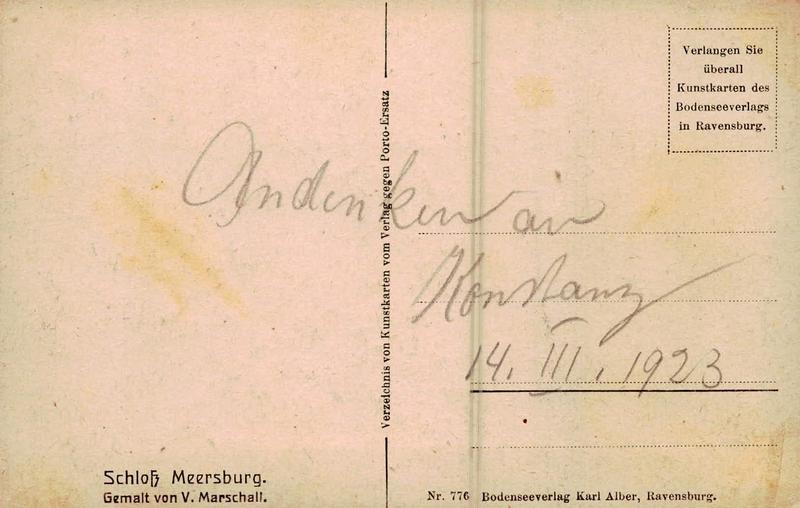 Verlangen Sie
überall
Kunstkarten des
Bodenseeverlags
in Ravensburg.
Andenken an
Konstanz
14. III. 1923
Verzeichnis von Kunstkarten vom Verlag gegen Porto-Ersatz
Schloß Meersburg.
Gemalt von V. Marschall.
Nr. 776 Bodenseeverlag Karl Alber, Ravensburg.